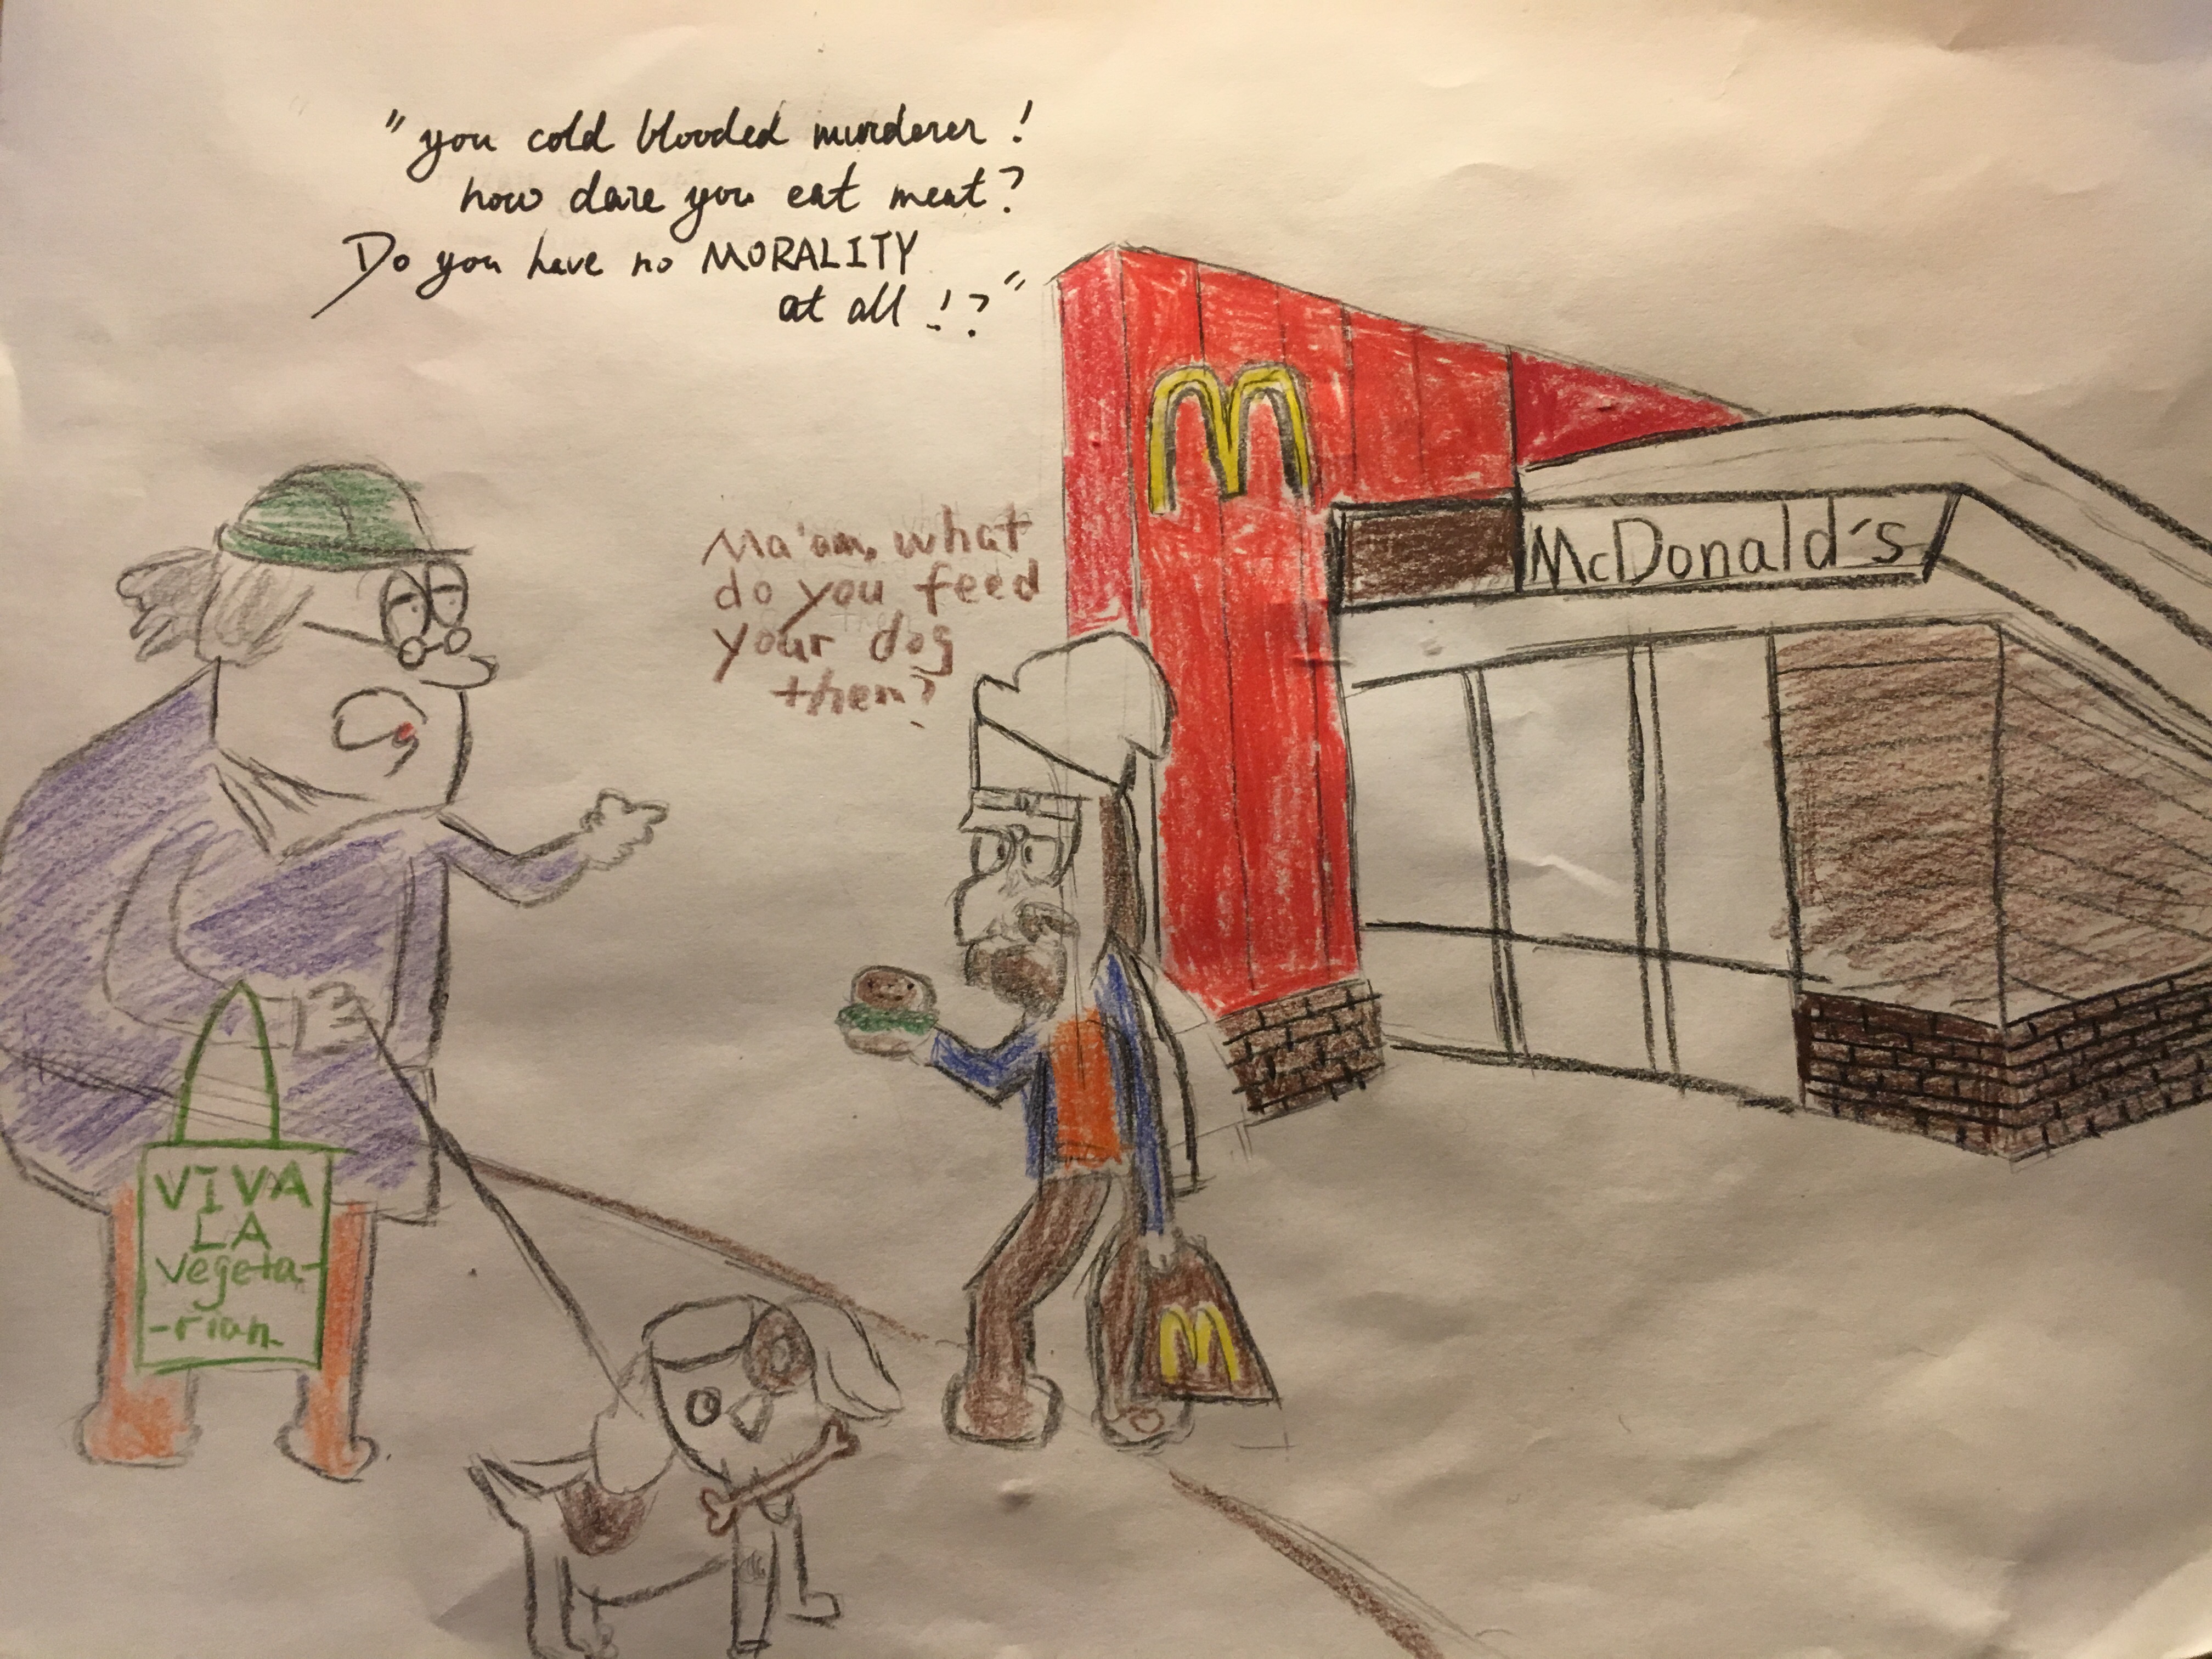 "you cold blooded murderer!
how dare you eat meat?
Do you have no MORALITY
at all!?"
Ma'am, what
do you feed
your dog
then?
McDonald's
VIVA
LA
vegeta-
-rian